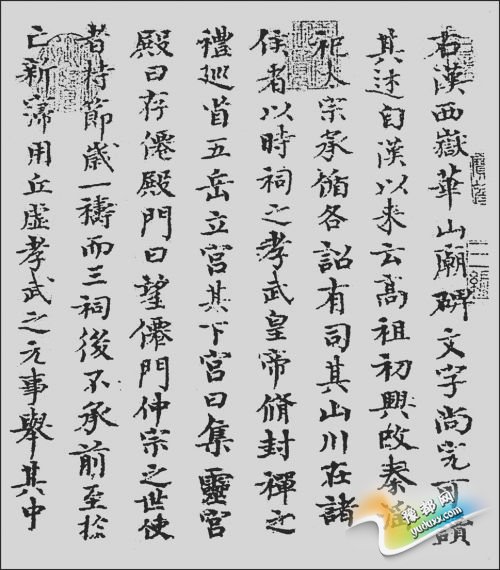 右漢西嶽華山廟碑文字尚完可讀
其述自漢以来云高祖初興改秦淫
祀太宗承脩各詔有司其山川在諸
侯者以時祠之孝武皇帝脩封禪之
禮巡省五岳立宮其下宮曰集靈宮
殿曰存僊殿門曰望僊門仲宗之世使
者持節歲一禱而三祠後不承前至於
亡新寖用丘虛孝武之元事舉其中
豫都网
yuduxx.com